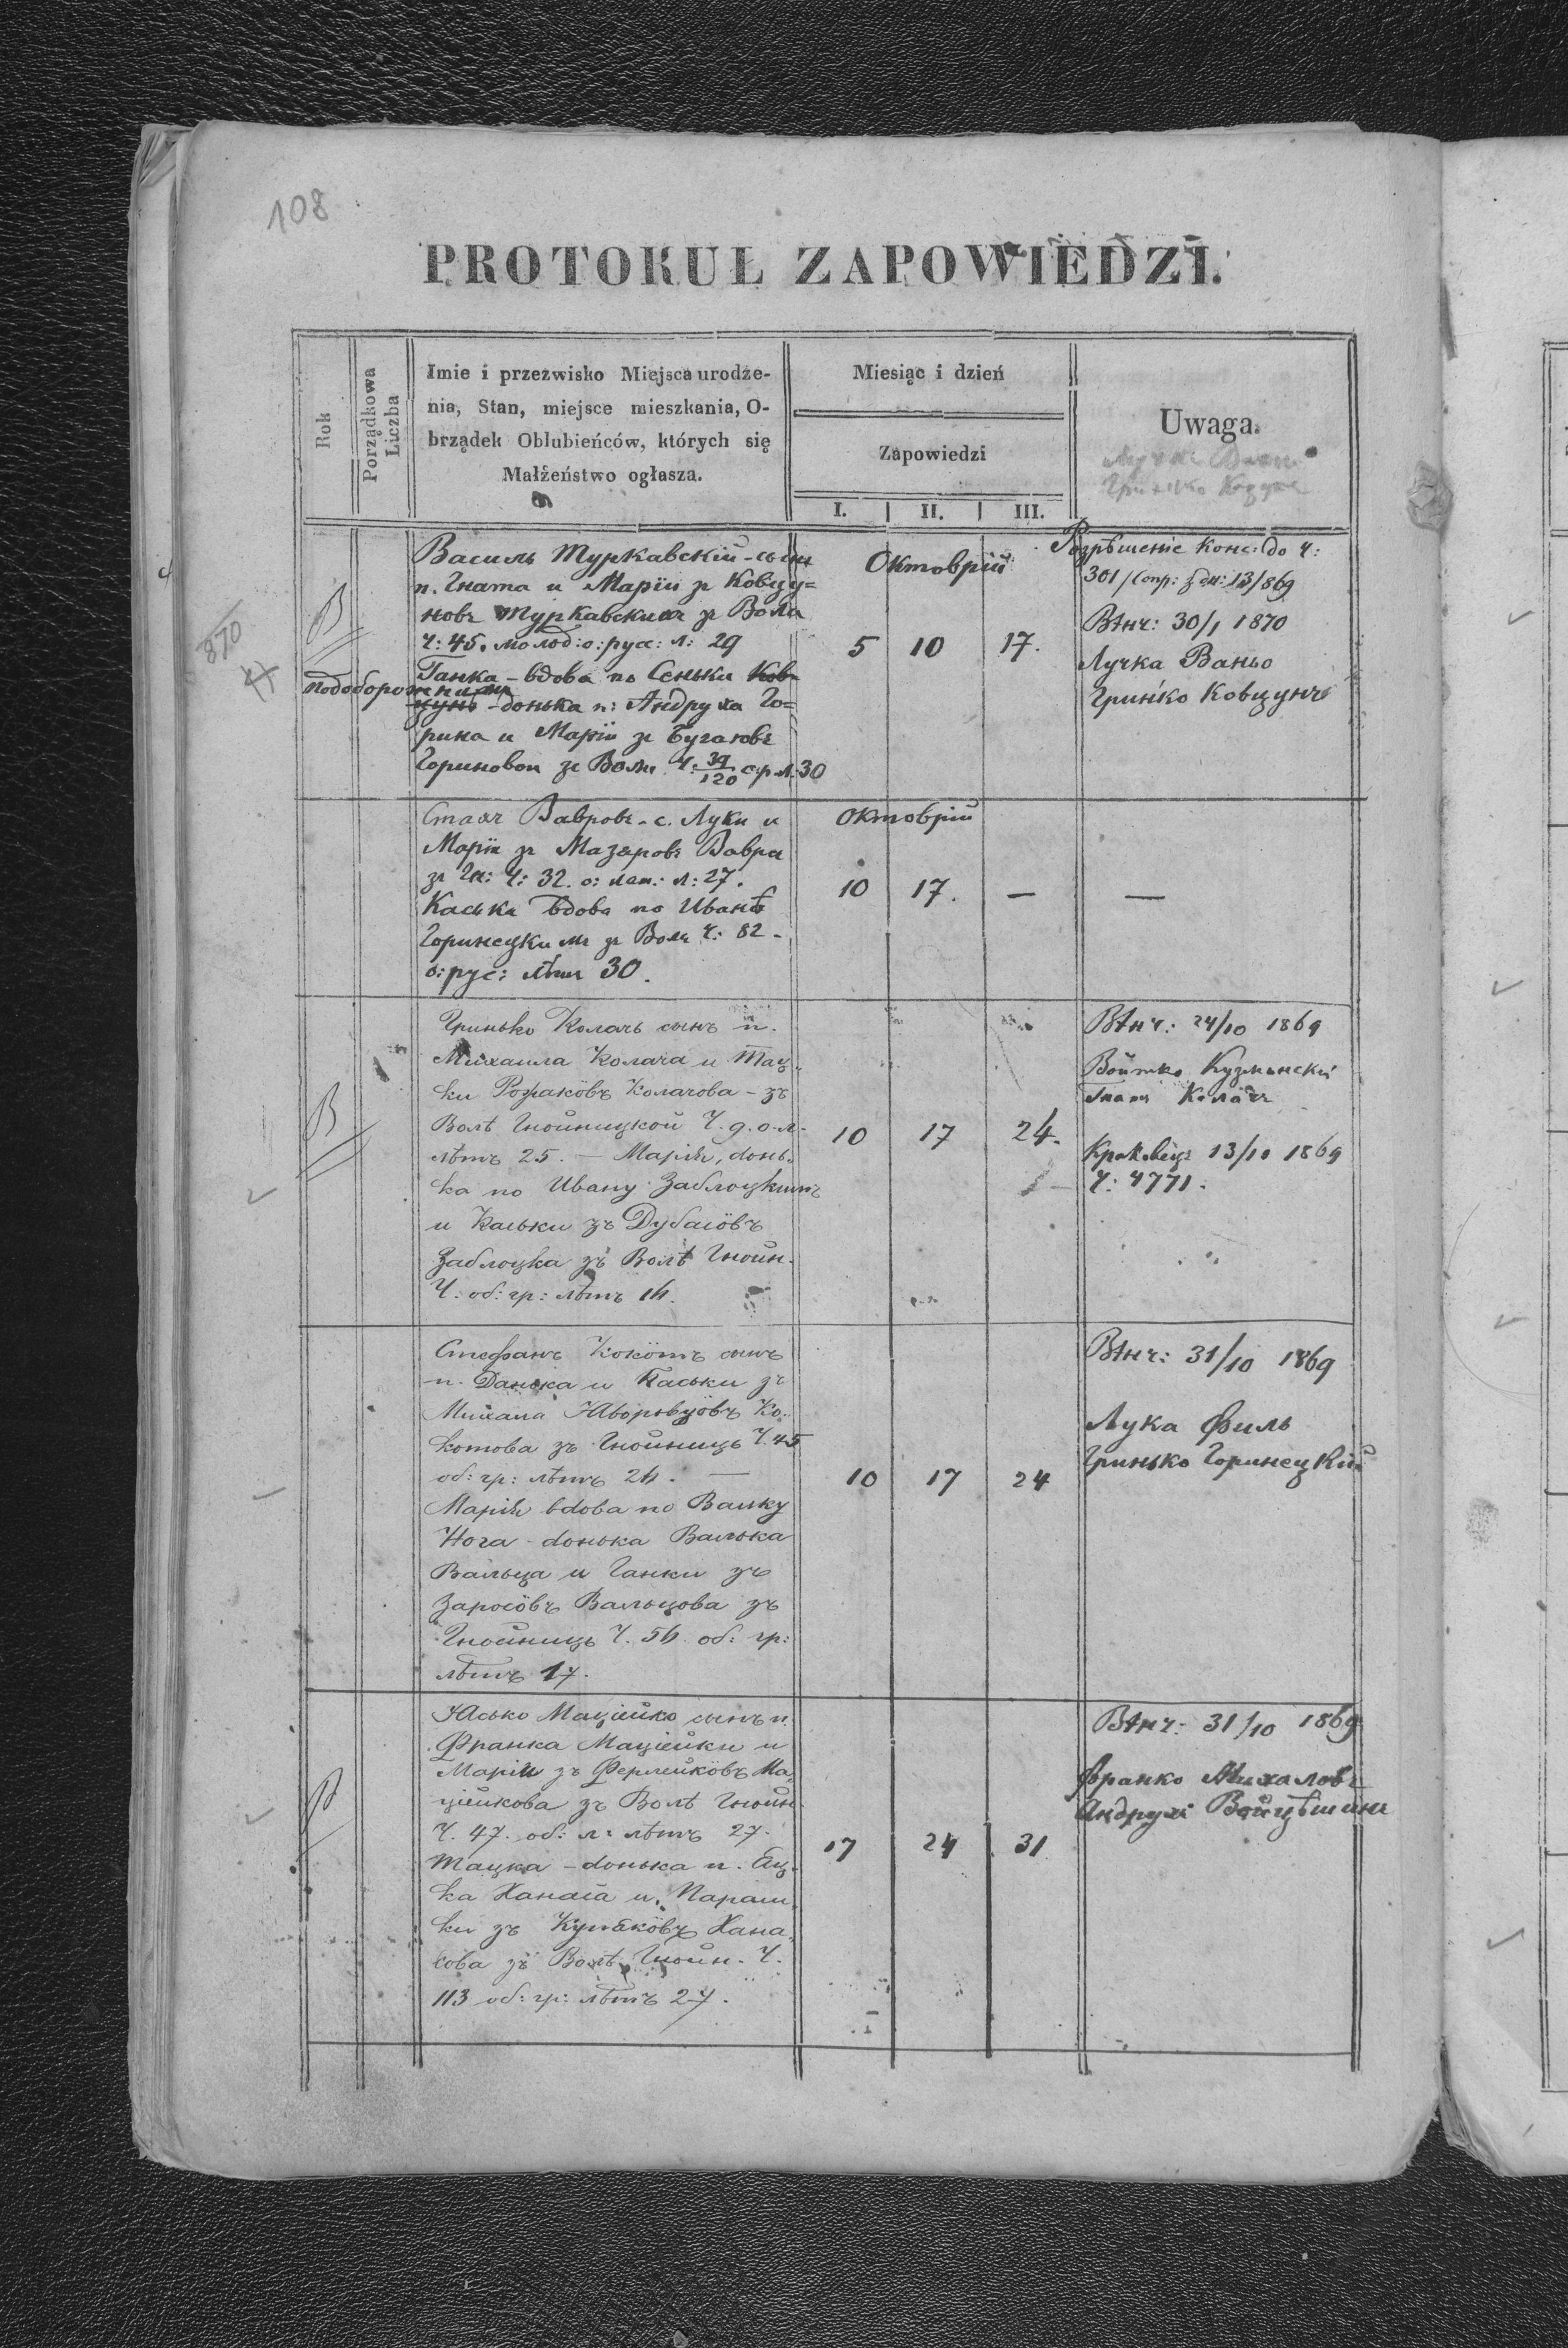 108
PROTOKUŁ ZAPOWIEDZI.
Rok
Porządkowa Liczba
Imie i przezwisko Miejsca urodze-
nia, Stan, miejsce mieszkania, O-
brządek Oblubieńców, których się
Małżeństwo ogłasza.
Miesiąc i dzień
Zapowiedzi
I. II. III.
Uwaga.
870
Василь Туркавскій - сынъ
п. Гната и Маріи зъ Ковцу=
новъ Туркавскихъ зъ Воли
Ч: 45. молод: о: рус: л: 29
Ганка - вдова по Сеньки Ков-
цунъ - донька п: Андруха Го=
рина и Маріи зъ
Гориновои зъ Воли Ч. 39/120 о р л. 30
Октоврій
5 10 17.
Розрѣшеніе Конс: до Ч:
301
Вѣнч: 30/1 1870
Лучка Ваньо
Гринько Ковцунъ
Стахъ Вавровъ - с. Луки и
Маріи зъ Мазяровъ Вавра
зъ Гн: Ч: 32. о: лат: л: 27.
Каська вдова по Иванѣ
Горинецкимъ зъ Воли Ч: 82 -
о: рус: лѣтъ 30.
Октоврій
10 17. —
—
Гринько Колачъ сынъ п.
Михаила Колача и Тац-
ки Колачова - зъ
Волѣ Гнойницкой Ч. 9. о. л.
лѣтъ 25. — Марія, донь-
ка по Ивану Заблоцкимъ
и Каськи зъ
Заблоцка зъ Волѣ Гнойн.
Ч. об: гр: лѣтъ 14.
10 17 24.
Вѣнч: 24/10 1869
Войтко Кузмѣнскій
Гнатъ Колачъ
13/10 1869
Ч: 4771.
Стефанъ Кокотъ сынъ
п. Данька и Каськи зъ
Ко-
котова зъ Гнойницъ Ч. 45
об: гр: лѣтъ 24. —
Марія вдова по Ваську
Нога - донька Васька
Вальца и Ганки зъ
Вальцова зъ
Гнойницъ Ч. 54 об: гр:
лѣтъ 17.
10 17 24
Вѣнч: 31/10 1869
Лука Филь
Гринько Горинецкій
Ясько Маціейко сынъ п.
Франка Маціейки и
Маріи зъ Ферлейковъ Ма-
ційкова зъ Волѣ Гнойн.
Ч. 47. об: л: лѣтъ 27.
Тацка - донька п. Яц-
ка Ханаса и Параш-
ки зъ Хана-
сова зъ Волѣ Гнойн. Ч.
113 об: гр: лѣтъ 27.
17 24 31
Вѣнч: 31/10 1869
Франко Михаловъ
Андрухъ